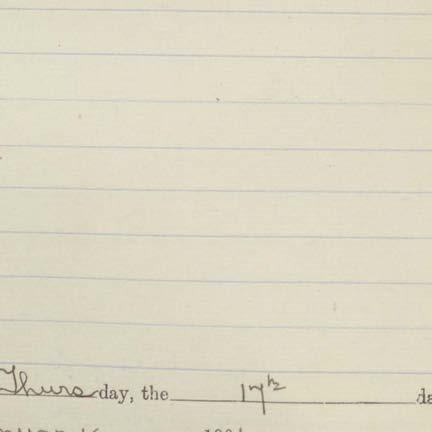 Thursday, the 17th da